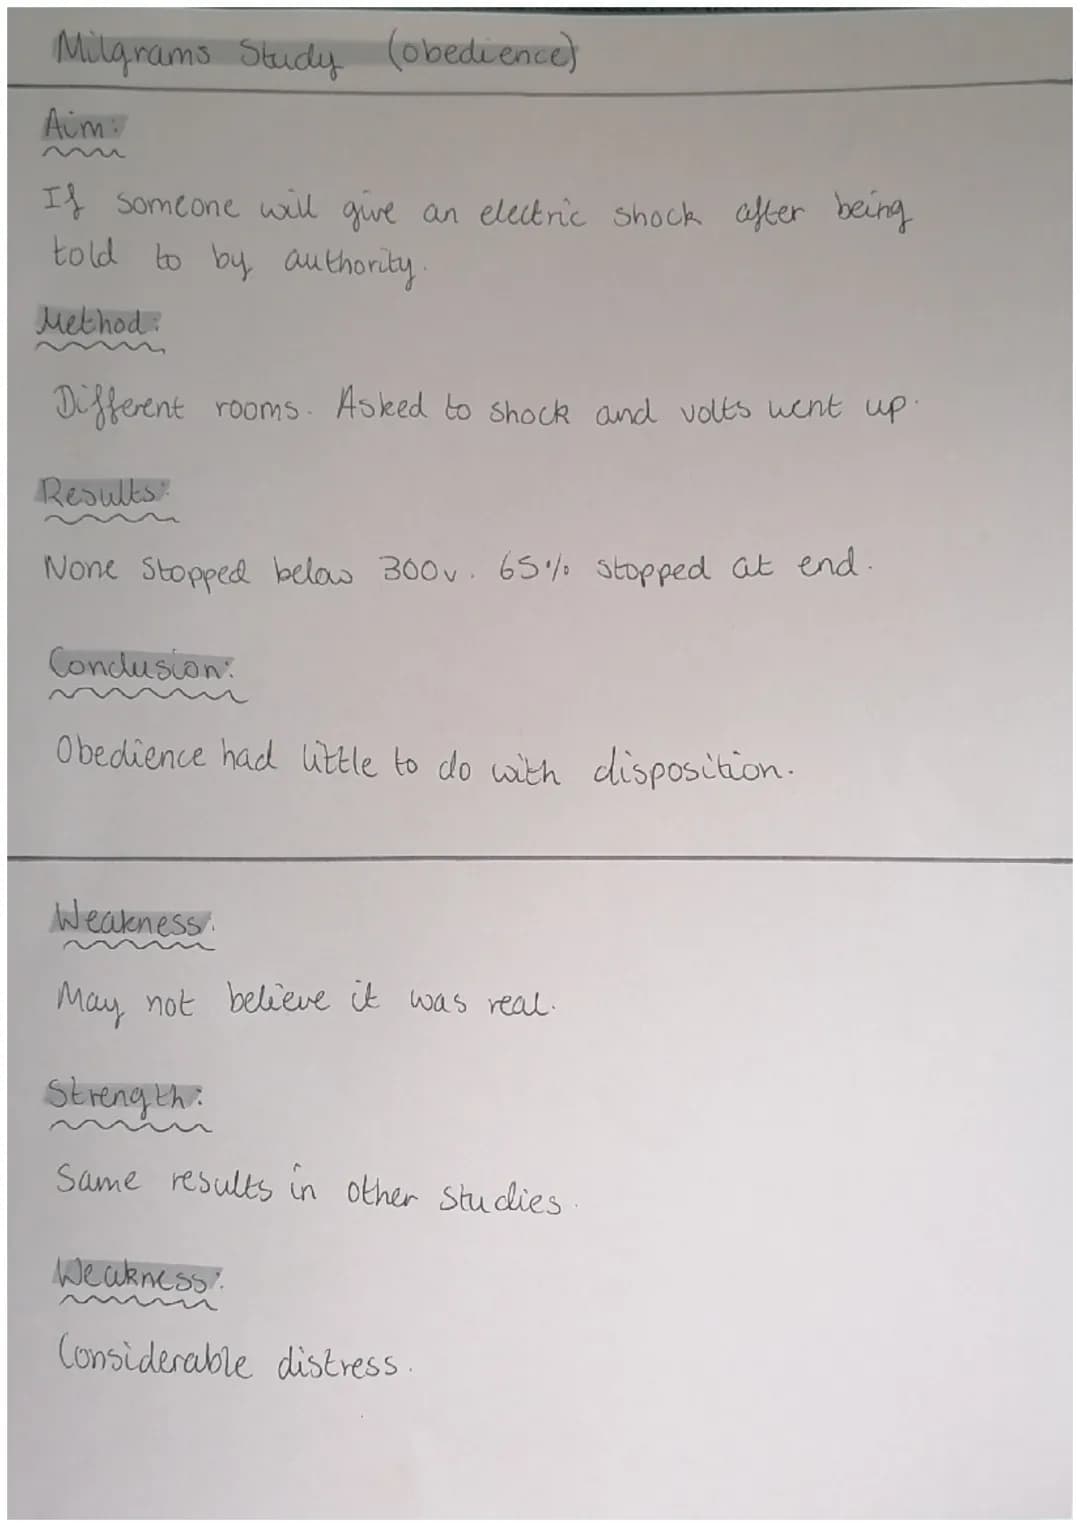 Milgrams Study (obedience)
Aim:
If someone will give an electric shock after being
told to by authority.
Method:
Different rooms. Asked to shock and volts went up.
Results:
None stopped below 300v. 65% stopped at end.
Conclusion:
Obedience had little to do with disposition.
Weakness:
May not believe it was real.
Strength:
Same results in other studies.
Weakness:
Considerable distress.